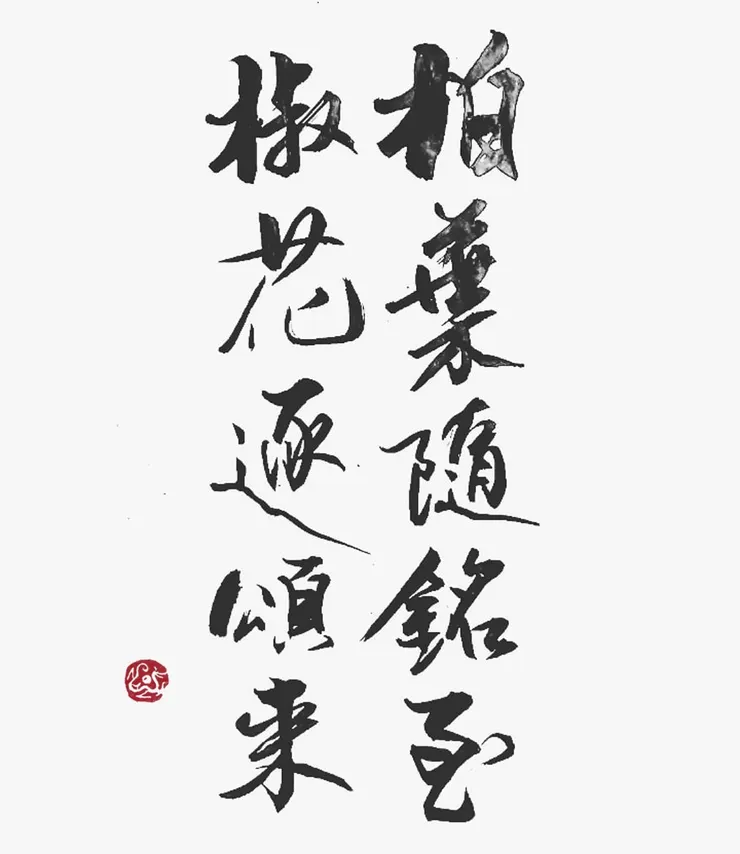 柏葉隨銘至
椒花逐頌來